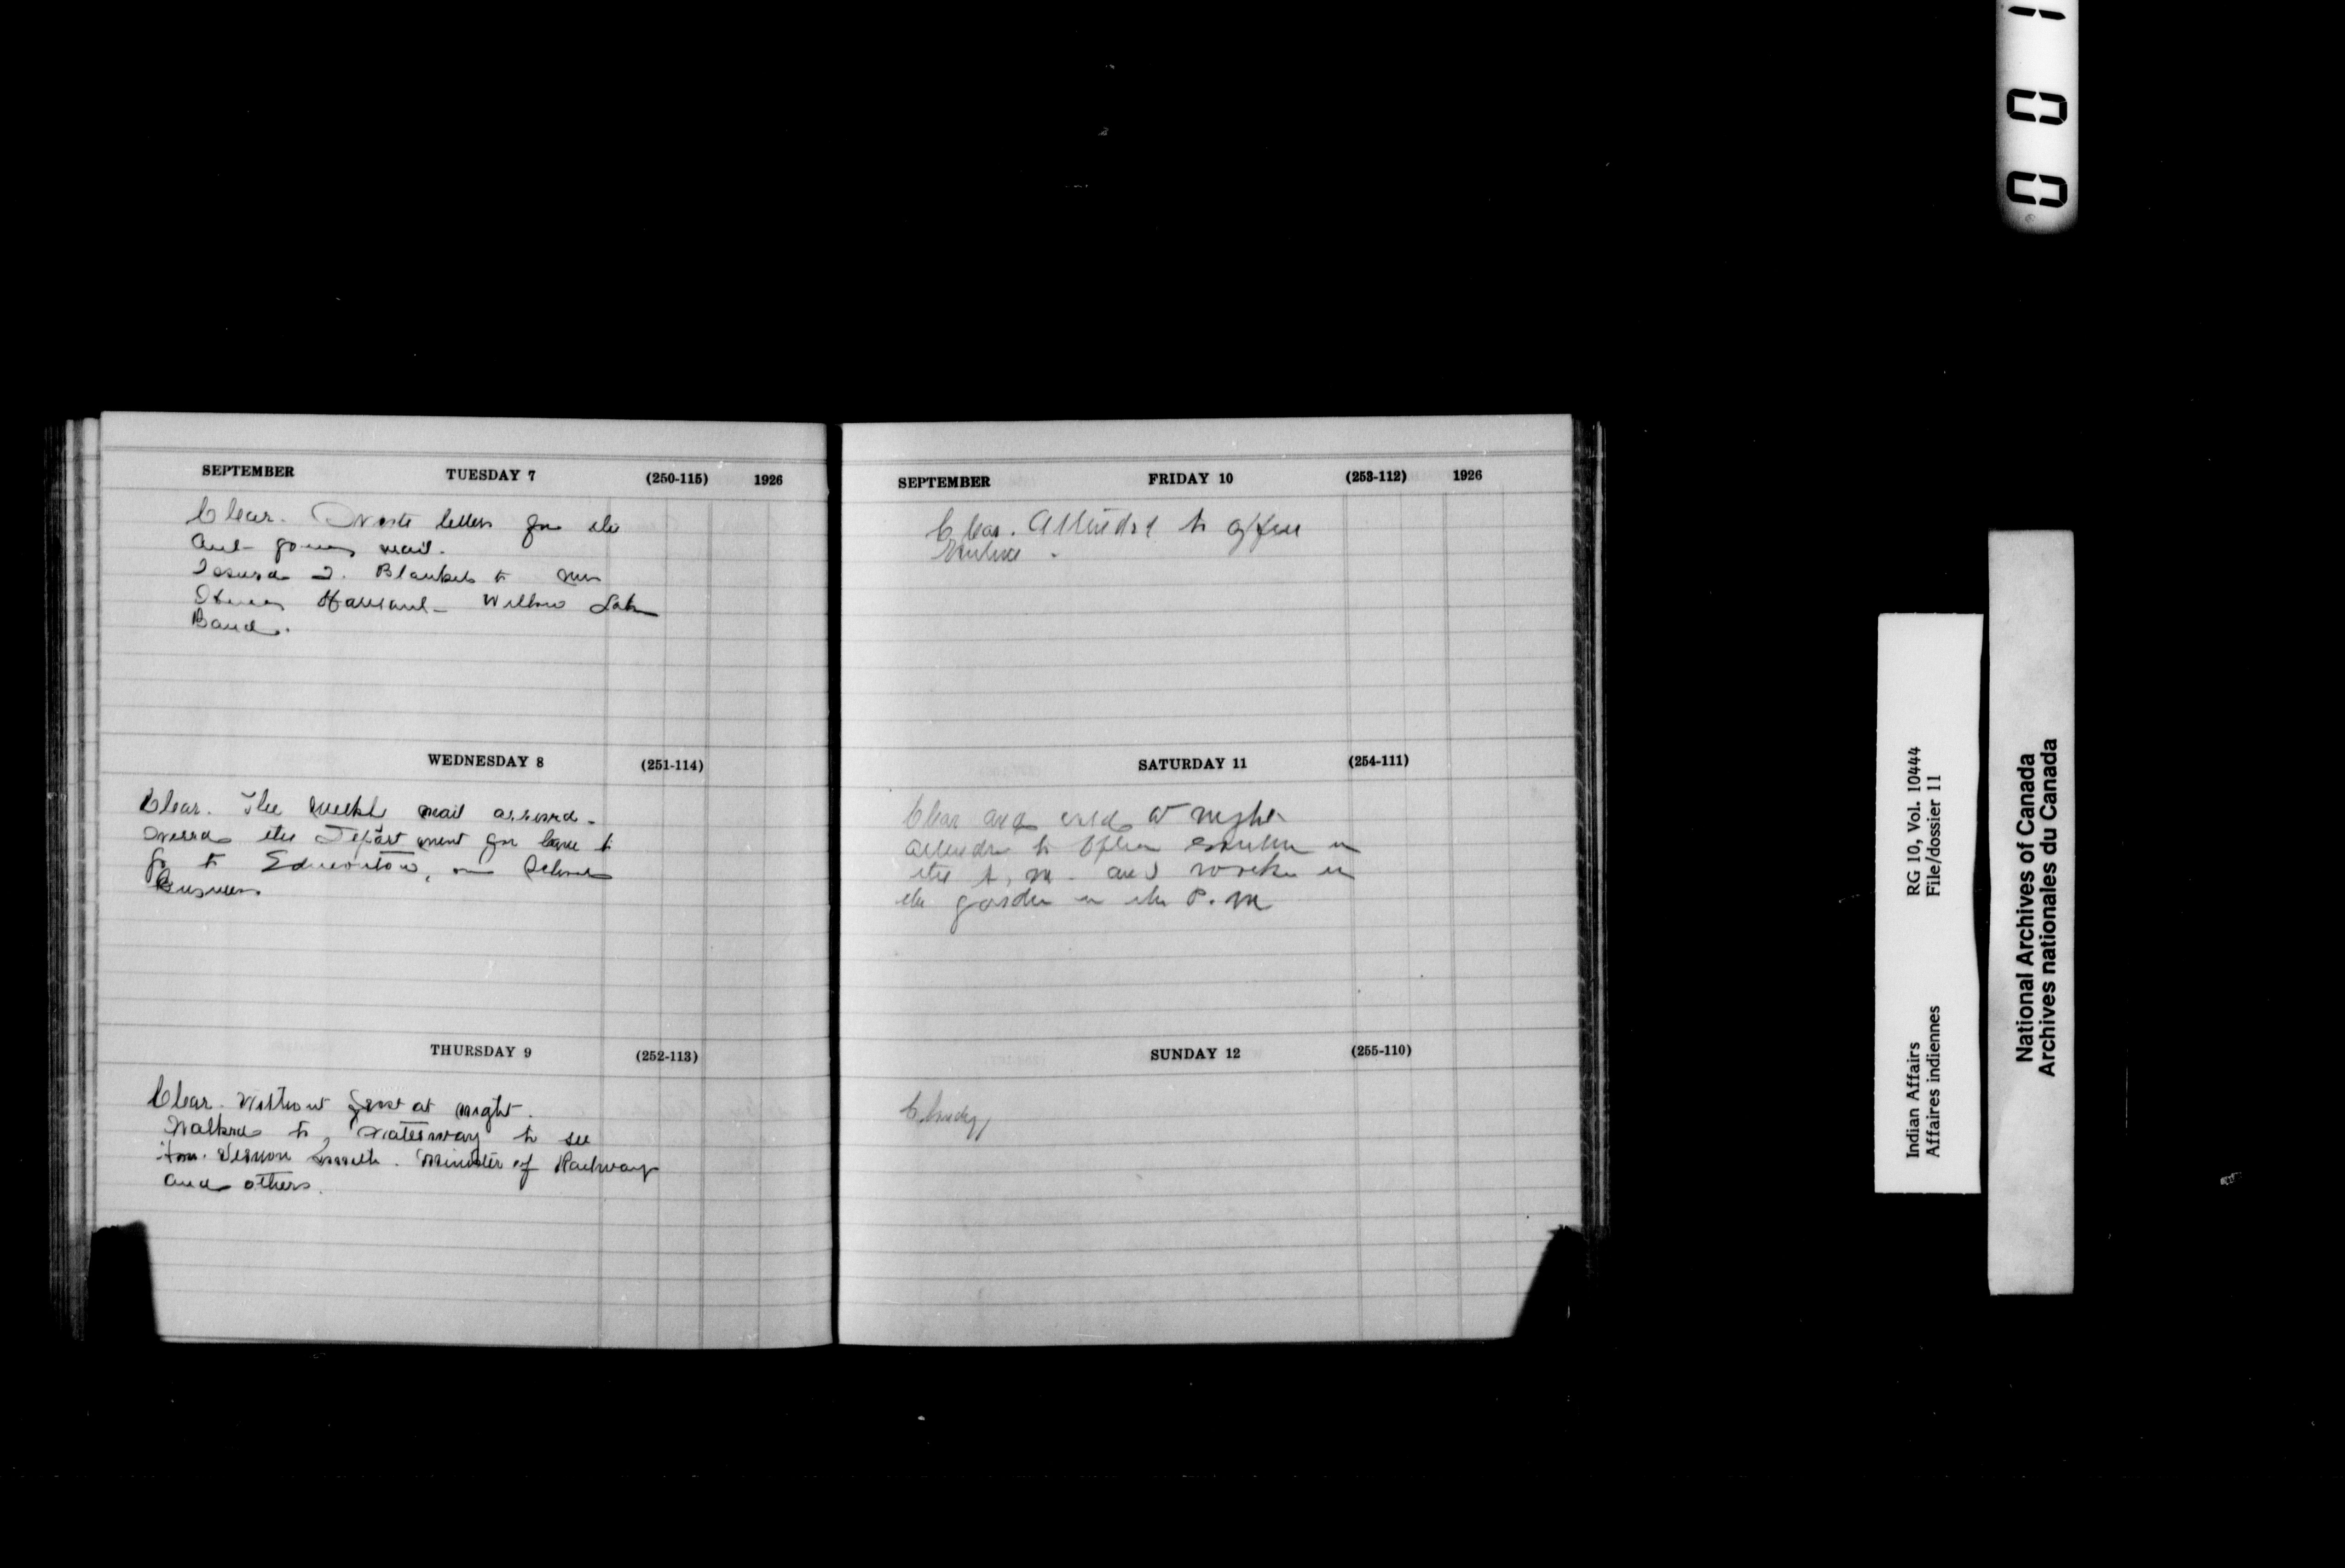 SEPTEMBER TUESDAY 7 (250-115) 1926
Clear. Wrote letters for the
out going mail.
Issued 2. Blankets to Mrs
Willow Lake
Band.
WEDNESDAY 8 (251-114)
Clear. The weekly mail arrived.
Wired the Department for leave to
go to Edmonton, on School
Business.
THURSDAY 9 (252-113)
Clear. Without frost at night.
Walked to Waterway to see
Hon. Vernon Smith. Minister of Railways
and others.
SEPTEMBER FRIDAY 10 (253-112) 1926
Clear. Attended to office
Routine.
SATURDAY 11 (254-111)
Clear and cold at night
attended to Office routine in
the A. M. and worked in
the garden in the P. M
SUNDAY 12 (255-110)
Cloudy
001
Indian Affairs RG 10, Vol. 10444
Affaires indiennes File/dossier 11
National Archives of Canada
Archives nationales du Canada